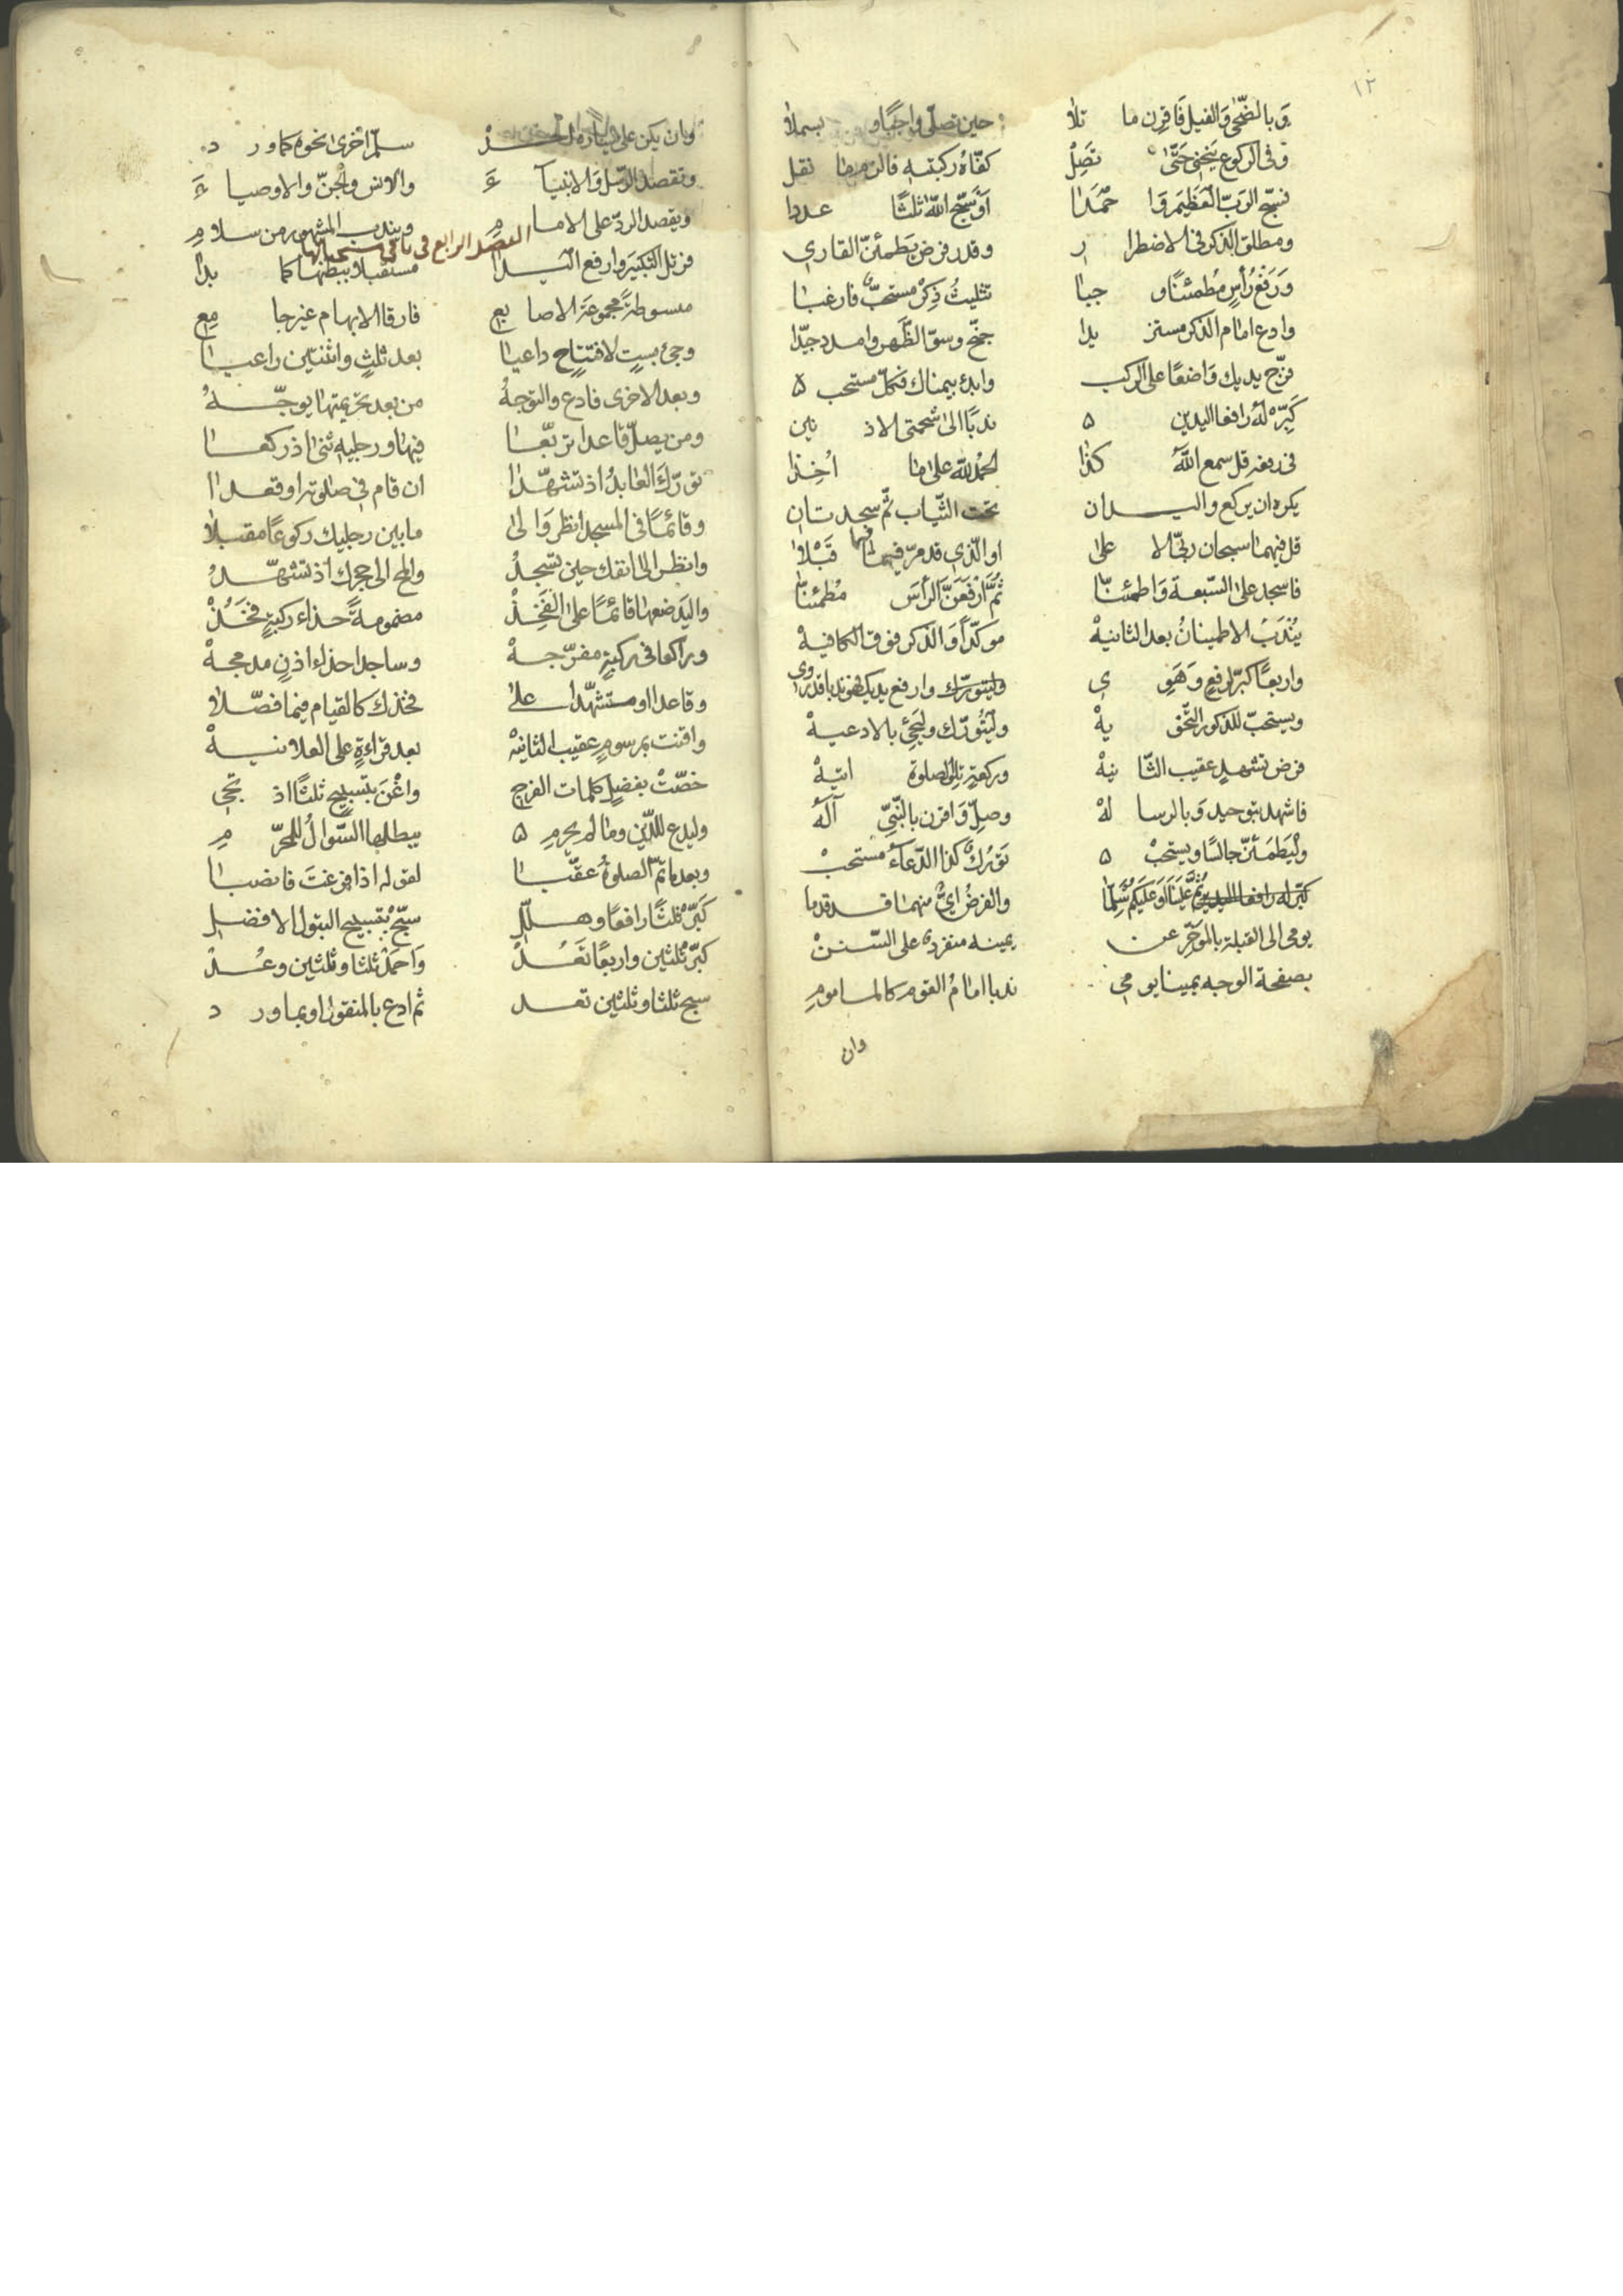 ١٢
وَبالضّحٰى وَالفيل فَاقرِن ما تلاٰ حين تصلّى واجبًا و بسملاٰ
وفى الركوع ينحنى حَتّىٰ تصِلْ كفّاهُ ركبتيه فالزم ما نقل
فسبّح الربّ العَظِيمَ وَا حْمَدَا اَوْ سَبّح اللّٰه ثلثًا عددا
ومطلق الذكر فى الاضطرا رِ وقدر فرض يَطمئنّ القارى
وَرَفْعُ رَأسٍ مُطمئنًا و جبٰا تثليثُ ذِكرٍ مستحبٌّ فارغبٰا
وادع امٰام الذكر مستز يدا جنّح وسوّ الظّهر وامدد جيّدا
فرّج يديك وَاضعًا على الركب وابدء بيمناك فكلّ مستحب ٥
كَبِّرْ لهُ رافعا اليدين ٥ ندبًا الىٰ شحمتى الاذ نين
فى رفعه قل سمع اللّٰهُ كذٰا الحمْدُ للّٰه علىٰ مٰا اُخِذٰا
يكره ان يركع واليـــدان تحت الثّياب ثمّ سجدتان
قل فيهمٰا سبحان ربّى الا علىٰ او الّذى قد مرّ فيهمٰا قَبْلاٰ
فاسجد علىٰ السّبعة وَاطمئنّا ثُمَّ ارْفَعَنَّ الرأسَ مُطمئنّاٰ
يُنْدَبُ الاطمينانُ بعد الثانيهْ موكّدًا وَالذكر فوق الكافيهْ
واربعًا كبّر لرفعٍ وَهَوِ ىٍ
ويستحبّ للذكور التّخو يهْ وليتورّك وليجئ بالادعيهْ
فرض تشهدٍ عقيب الثّا نيهْ وركعةٍ تلى الصلوة اتيهْ
فاشهد بتوحيد وَبالرسا لهْ وصلِّ وَاقرن بالنّبىّ آلهُ
ولْيَطمَئنّ جالسًا ويستحبْ ٥ تورّكٌ كذا الدّعآءُ مستحبْ
ثُمَّ عَلَينَا وَعَلَيكُمْ سَلِّمٰا والفرضُ اىٌّ منهمٰا قــد قدما
يومى الى القبلة بالموخّر عن يمينه منفردٌ على السّننْ
بصفحة الوجه يمينا يومى ندبا امامُ القوم كالمامومِ
وان
وان يكن على اليسار احــدْ سلّم اخرىٰ نحوه كما ور د
وتقصد الرّسل وَالانبيآ ءَ والانس والجنّ والاوصيا ءَ
ويقصد الردّ على الاما مِ ويندب المشهور من سلامِ
الفصل الرابع فى باقى مستحباتها
فرتل التكبير وارفع اليــدا مستقبلا ببطنها كما بدا
مبسوطة مجموعة الاصا بع فارقا الابهام غير جا مِعِ
وجئ بستٍ لافتتاحٍ داعيٰا بعد ثلثٍ واثنتين راعيــٰا
وبعد الاخرى فادع والتوجهُ من بعد تحريمتهٰا يوجّــهُ
ومن يصلّ قاعدا تربّعٰا فيهٰا ورجليه ثنىٰ اذ ركعــٰا
تورّك العابدُ اذ تشهّدٰا ان قام فى صلوته او قعــدٰا
وقائمًا فى المسجد انظر وَا لىٰ ما بين رجليك ركوعًا مقبلاٰ
وانظر الى انفك حين تسجدُ والمح الى حجرك اذ تشهّــدُ
واليد ضعها قائمًا علىٰ الفَخِذْ مضمومةً حذاء ركبةٍ فخُذْ
وراكعا فى ركبةٍ مفرّجــهْ وساجدا حذاء اذنٍ مدمجهْ
وقاعدا او متشهّدا علىٰ فخذك كالقيام فيما فصّلاٰ
واقنت بمرسومٍ عقيب الثانيهْ بعد قراءةٍ على العلانيــهْ
خصّتْ بفضلٍ كلمات الفرج واغْنَ بتسبيحٍ ثلثًا اذ تجى
وليدع للدّين وما لم يحرمِ ٥ يبطلها السّوالُ للمحرّ مِ
وبعد ما تمّ الصلوةُ عقّبٰا لقوله اذا فرغتَ فانصبٰا
كَبّرْ ثلثًا رافعًا وهــلّلِ سبّحْ بتسبيح البتول الافضلِ
كبّر ثلثين واربعًا تعُدْ وَاحمَدْ ثلثا وثلثين وعُــدْ
سبح ثلثا وثلثين تعــد ثم ادع بالمنقول او بما ور د